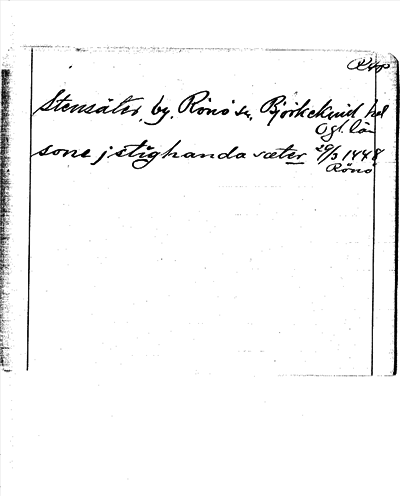 Stensäter, by, Rönö sn, Björkekind hd
Ögl. län
sone j stighanda sæter 29/3 1448
Rönö